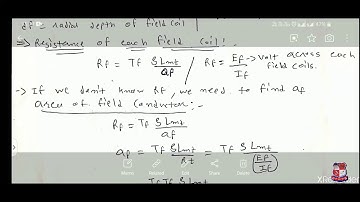 df = radial depth of field coil
⇒ Resistance of each field coil:
Rf = Tf ρLmt/af / Rf = Ef/If → Volt across each field coils.
→ If we don't know Rf, we need to find af
area of field conductor:-
Rf = Tf ρLmt/af
af = Tf ρLmt/Rf = Tf ρLmt/(Ef/If)